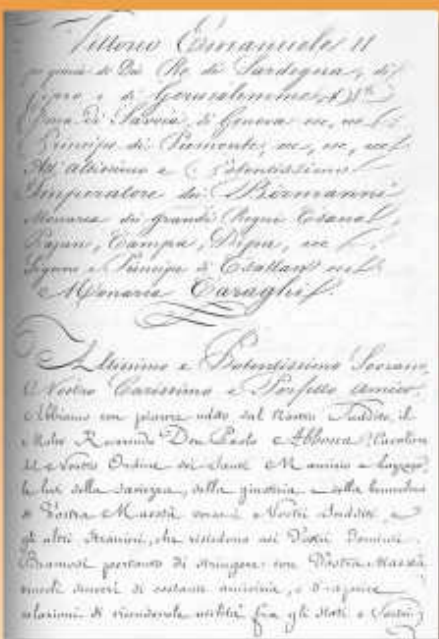 Vittorio Emanuele II
per grazia di Dio Re di Sardegna, di
Cipro e di Gerusalemme,
Duca di Savoia, di Genova ecc, ecc
Principe di Piemonte, ecc, ecc, ecc
All'altissimo e Potentissimo
Imperatore dei Birmanni
Monarca dei grandi Regni
Campa, Dipa, ecc
Signore e Principe di ecc
e Monarca Caraghi
Altissimo e Potentissimo Sovrano,
Nostro Carissimo e Perfetto Amico.
Abbiamo con piacere udito dal Nostro Suddito, il
Molto Reverendo Don Paolo Abbona, Cavaliere
del Nostro Ordine dei Santi Maurizio e Lazzaro,
della saviezza, della giustizia, e della
di Vostra Maestà verso i Nostri Sudditi, e
gli altri stranieri, che risiedono nei Vostri Dominii.
Bramosi pertanto di stringere con Vostra Maestà
vincoli sinceri di costante amicizia, e d'aprire
relazioni di vicendevole utilità fra gli Stati e